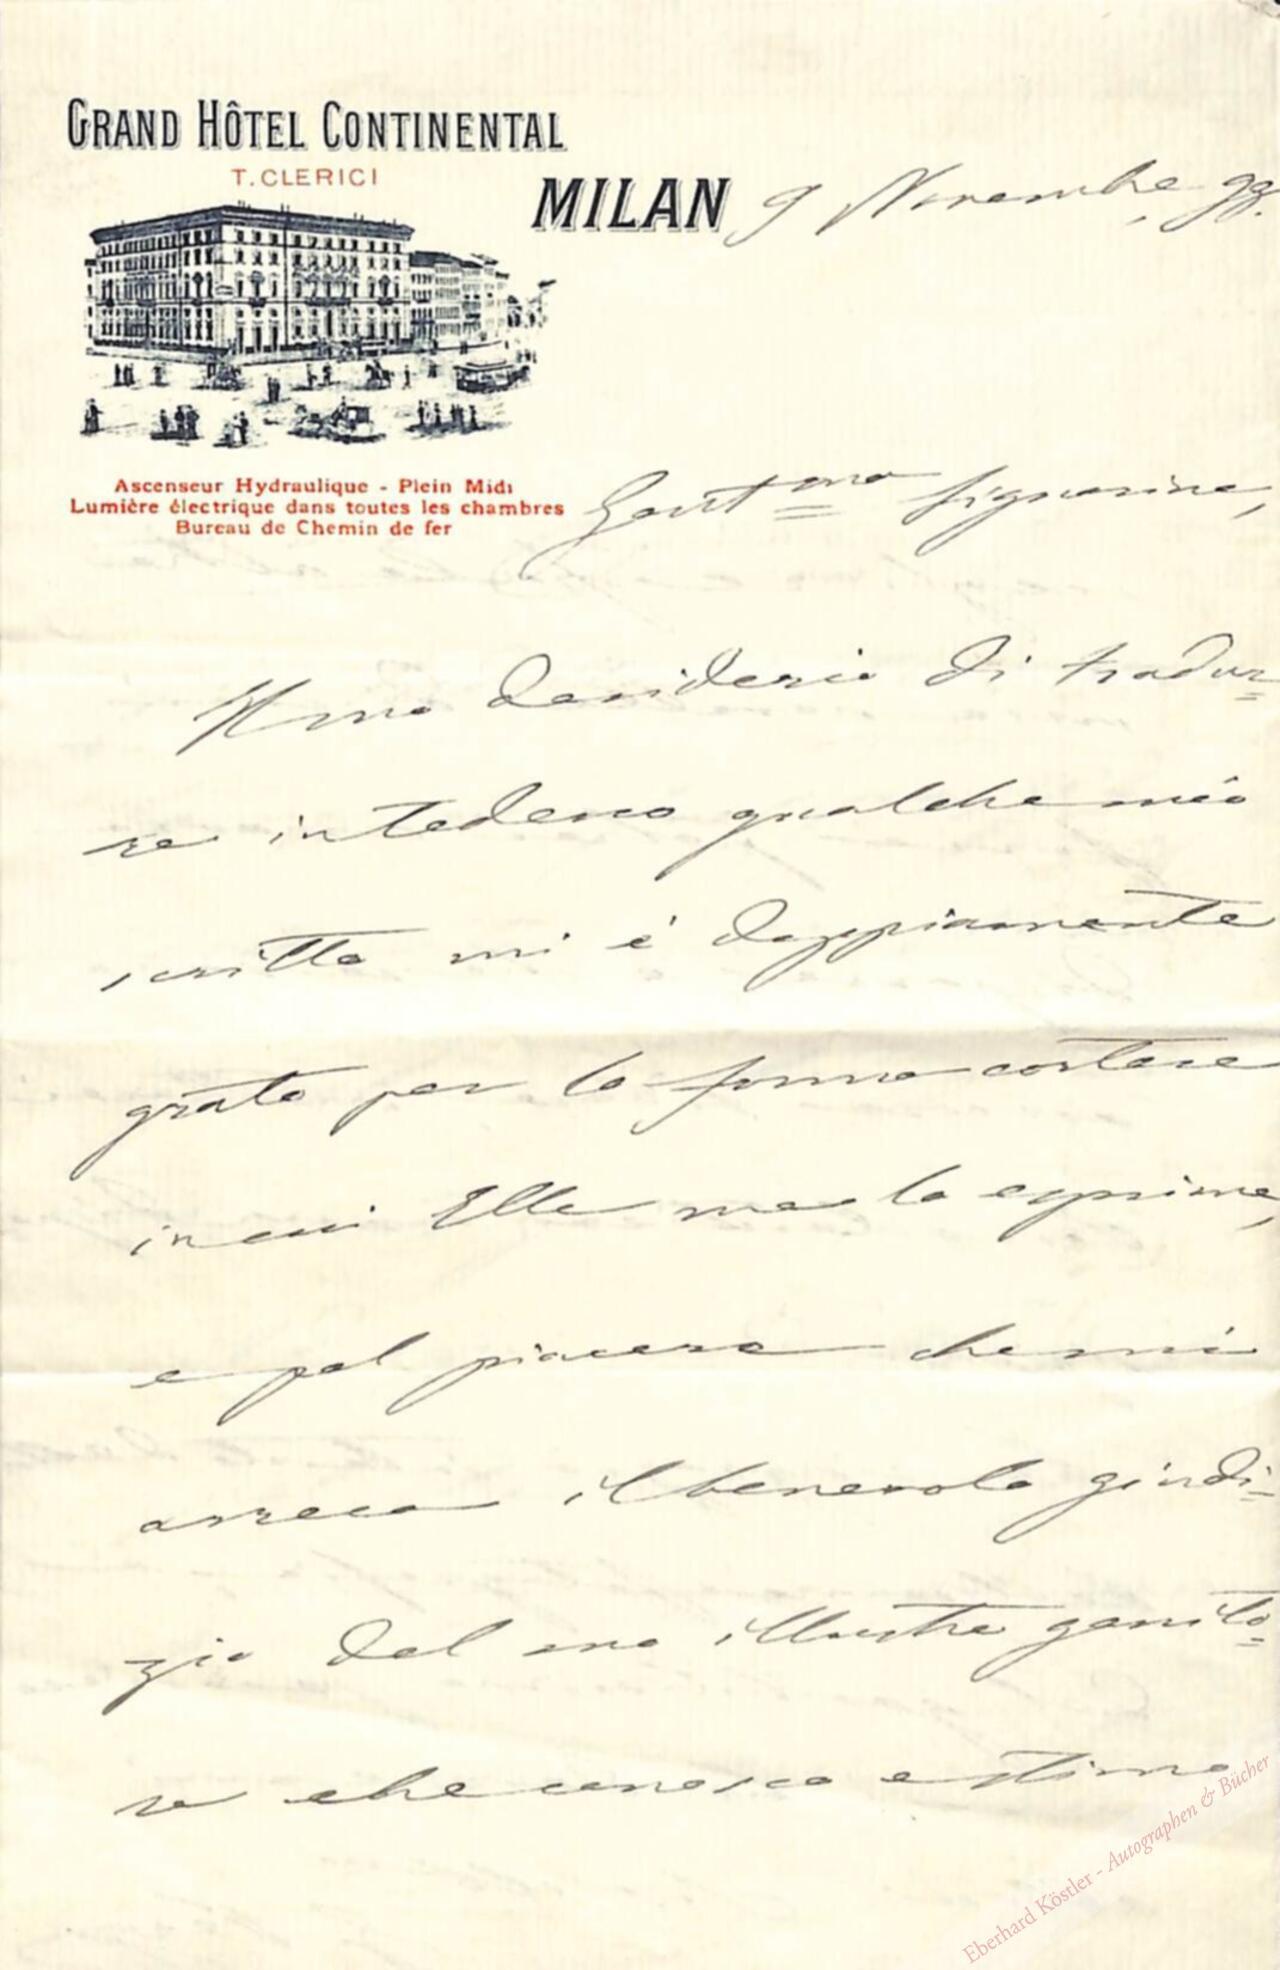 GRAND HÔTEL CONTINENTAL
T. CLERICI
MILAN 9 Novembre 98.
Ascenseur Hydraulique - Plein Midi
Lumière électrique dans toutes les chambres
Bureau de Chemin de fer
Gent.ma Signorina,
Il suo desiderio di tradur=
re in tedesco qualche mio
scritto mi è doppiamente
grato per la forma cortese
in cui Ella me lo esprime,
e pel piacere che mi
arreca il benevolo giudi=
zio del suo illustre genito=
re che conosco e stimo
Eberhard Köstler - Autographen & Bücher